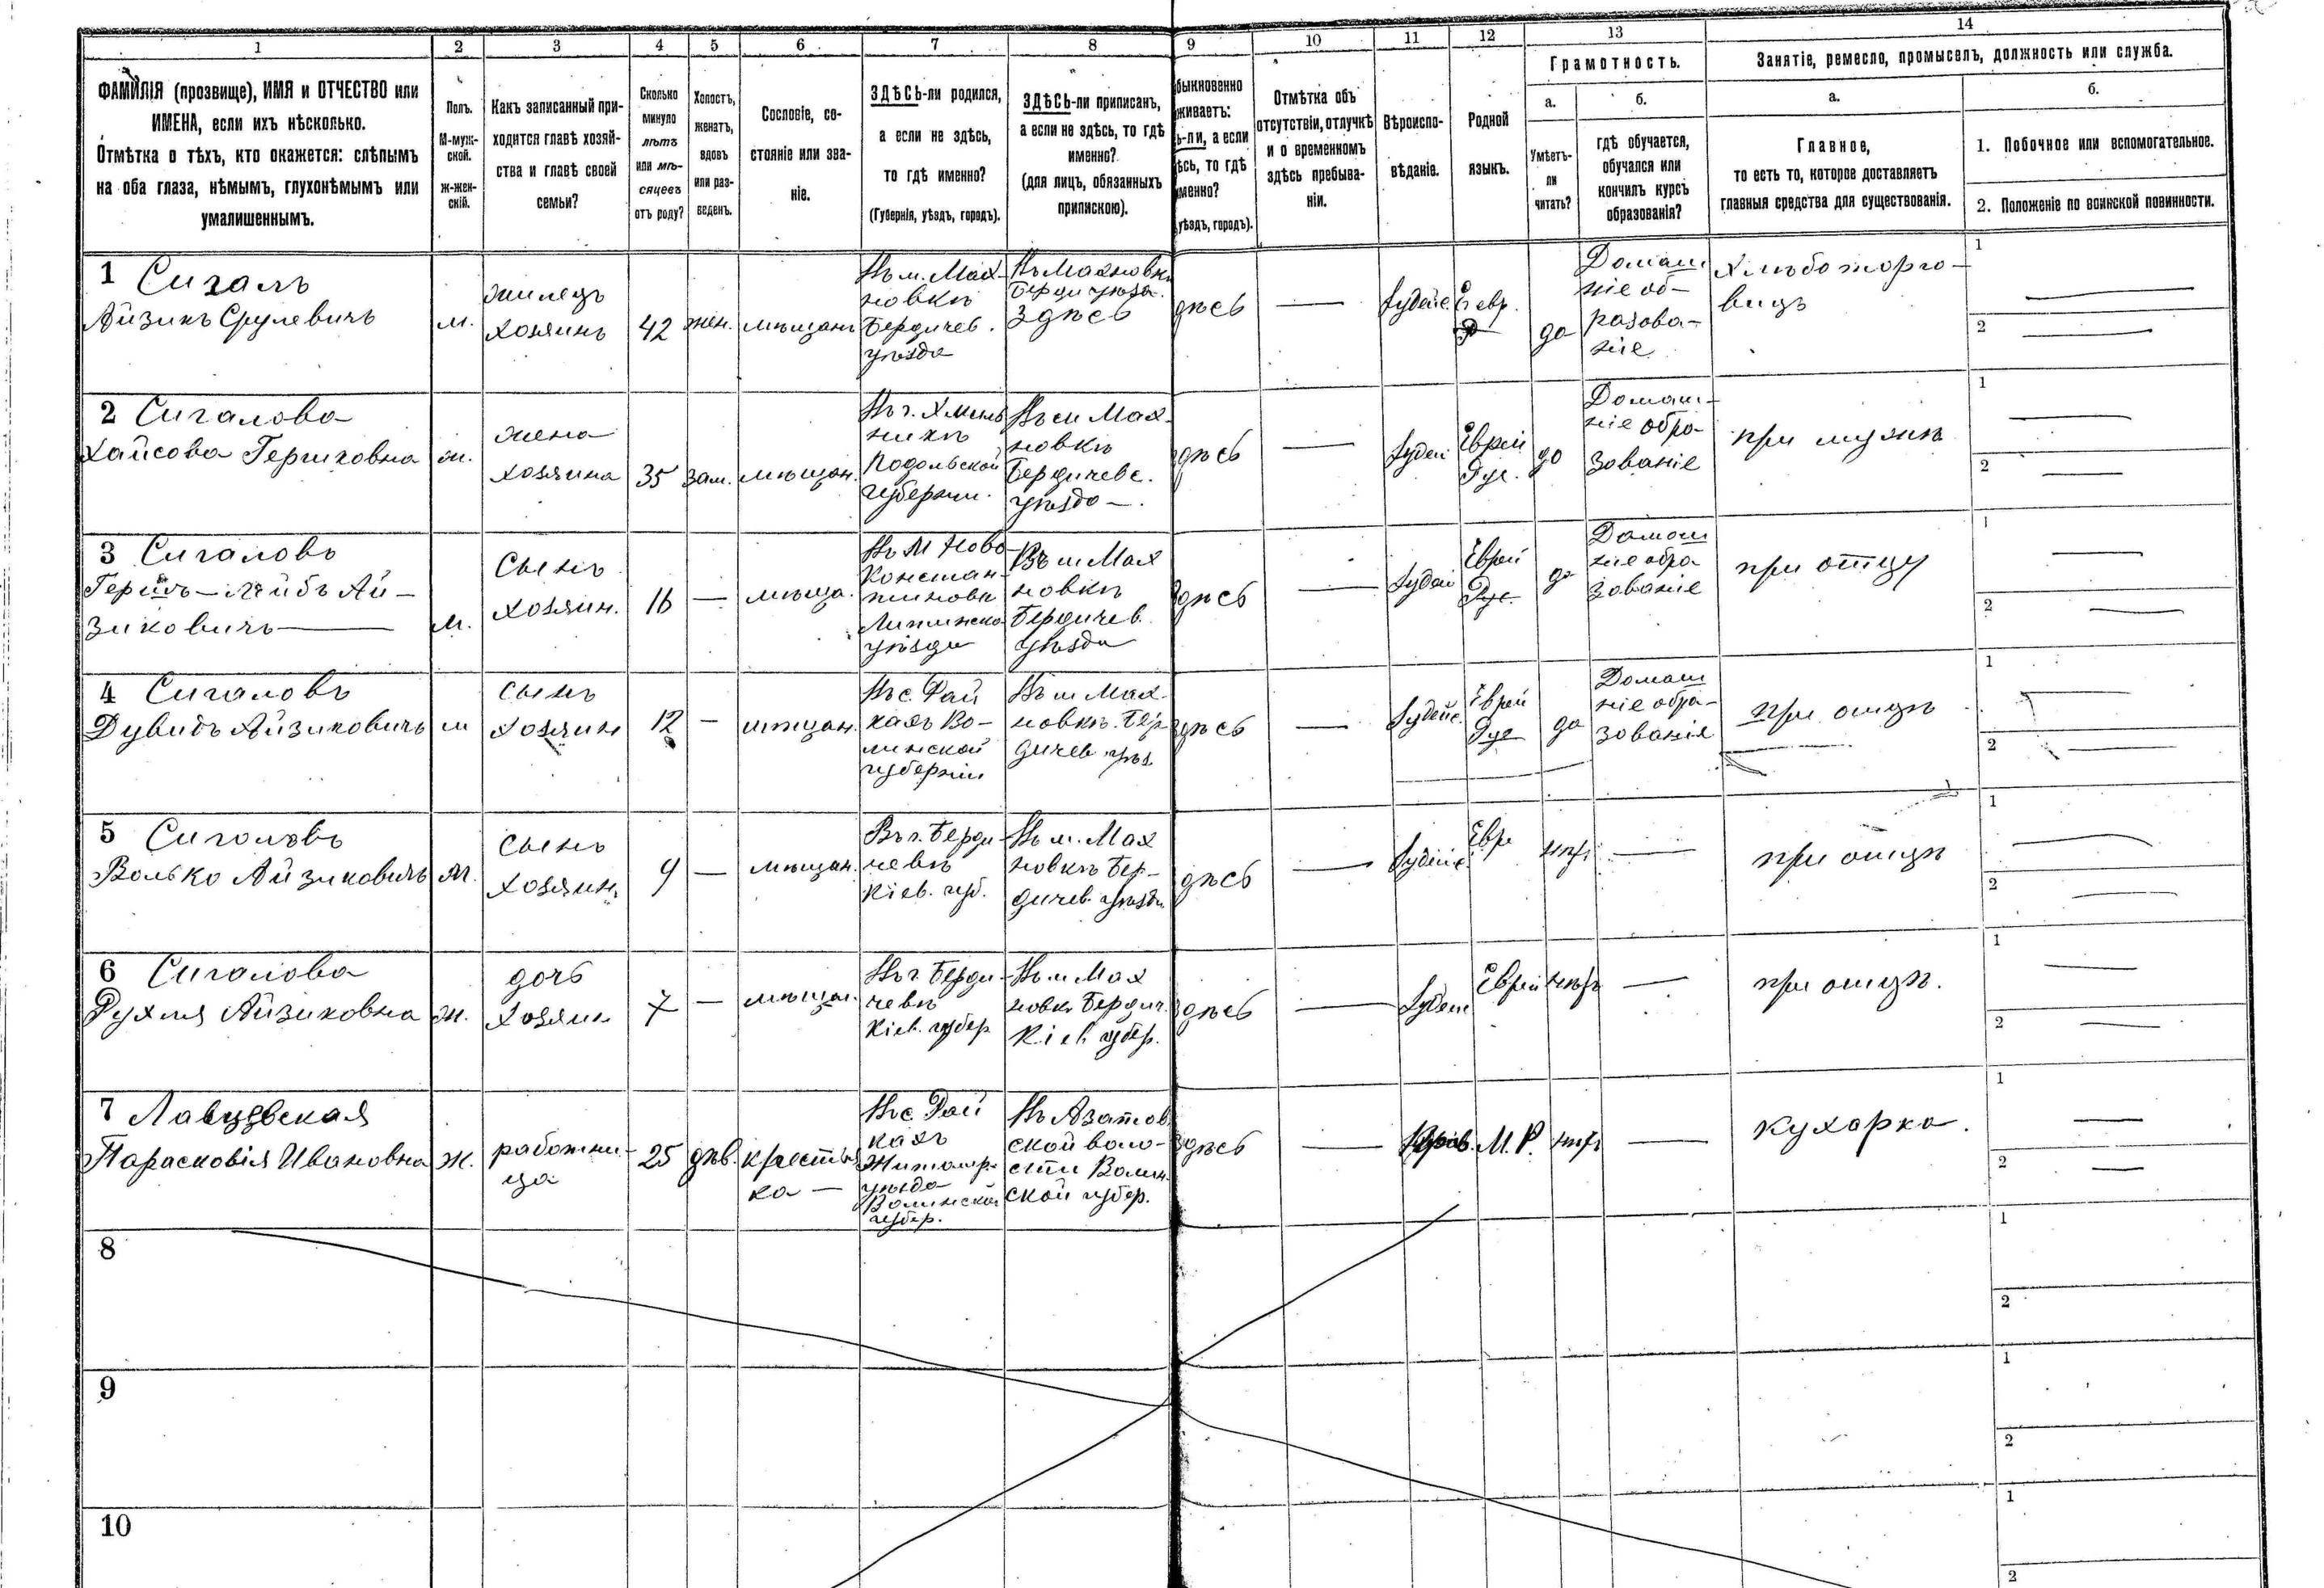 1 2 3 4 5 6 7 8 9 10 11 12 13 14
ФАМИЛІЯ (прозвище), ИМЯ и ОТЧЕСТВО или
ИМЕНА, если ихъ нѣсколько.
Отмѣтка о тѣхъ, кто окажется: слѣпымъ
на оба глаза, нѣмымъ, глухонѣмымъ или
умалишеннымъ.
Полъ.
М-муж-
ской.
Ж-жен-
скій.
Какъ записанный при-
ходится главѣ хозяй-
ства и главѣ своей
семьи?
Сколько
минуло
лѣтъ
или мѣ-
сяцевъ
отъ роду?
Холостъ,
женатъ,
вдовъ
или раз-
веденъ.
Сословіе, со-
стояніе или зва-
ніе.
ЗДѢСЬ-ли родился,
а если не здѣсь,
то гдѣ именно?
(Губернія, уѣздъ, городъ).
ЗДѢСЬ-ли приписанъ,
а если не здѣсь, то гдѣ
именно?
(для лицъ, обязанныхъ
припискою).
быкновенно
живаетъ:
ь-ли, а если
ѣсь, то гдѣ
именно?
уѣздъ, городъ).
Отмѣтка объ
отсутствіи, отлучкѣ
и о временномъ
здѣсь пребыва-
ніи.
Вѣроиспо-
вѣданіе.
Родной
языкъ.
Грамотность.
а.
Умѣетъ-
ли
читать?
б.
гдѣ обучается,
обучался или
кончилъ курсъ
образованія?
Занятіе, ремесло, промыселъ, должность или служба.
а.
Главное,
то есть то, которое доставляетъ
главныя средства для существованія.
б.
1. Побочное или вспомогательное.
2. Положеніе по воинской повинности.
1 Сигалъ
Айзикъ Срулевичъ
м.
Хозяинъ
42
жен.
мѣщан
Въ м. Мах-
новкѣ
Бердичев.
уѣзда
Въ Махновкѣ
Здѣсь
дѣсь
—
Іудейс.
Евр.
да
Домаш
ніе об-
разова-
ніе
Хлѣботорго-
вецъ
1 —
2 —
2 Сигалова
Гершковна
ж.
жена
хозяина
35
зам.
мѣщан.
Въ г. Хмель
никѣ
Подольской
губерніи.
Въ м Мах-
новкѣ
Бердичевс.
уѣзда —.
дѣсь
—
Іудей
Еврей
Рус.
да
Домаш-
ніе обра-
зованіе
при мужѣ
1 —
2 —
3 Сигаловъ
Лейбъ Ай-
зиковичъ —
м.
Сынъ
Хозяин.
16
—
мѣща.
Въ м Ново
Констан-
тиновѣ
уѣзда
Въ м Мах
новкѣ
Бердичев.
уѣзда
здѣсь
—
Іудей
Еврей
Рус.
да
Домаш
ніе обра
зованіе
при отцу
1 —
2 —
4 Сигаловъ
Дувидъ Айзиковичъ
м
сынъ
Хозяин
12
—
мѣщан.
Въ с. Рай
кахъ Во-
линской
губерніи
Въ м Мах-
новкѣ Бер
дичев. уѣз.
здѣсь
—
Іудейс.
Еврей
Рус
да
Домаш
ніе обра-
зованія
при отцѣ
1 —
2 —
5 Сигаловъ
Волько Айзиковичъ
м.
сынъ
Хозяин.
9
—
мѣщан.
Въ г. Берди
чевѣ
Кіев. губ.
Въ м. Мах
новкѣ Бер-
дичев. уѣзда
дѣсь
—
Іудейс
Евре
нѣтъ
—
при отцѣ
1 —
2 —
6 Сигалова
Рухля Айзиковна
ж.
дочь
Хозяин
7
—
мѣщан.
Въ г. Берди
чевѣ
Кіев. губер
Въ м Мах
новкѣ Бердич.
Кіев губер.
здѣсь
—
Іудейс
Еврей
нѣтъ
—
при отцѣ.
1 —
2 —
7
Парасковія Ивановна
ж.
работни-
ца
25
дѣв.
крестьян
ка —
Въ с. Рай
кахъ
Житомир
уѣзда
Волинской
губер.
ской воло-
сти Волин-
ской губер.
здѣсь
—
М. Р.
нѣтъ
—
кухарка.
1 —
2 —
8
1
2
9
1
2
10
1
2